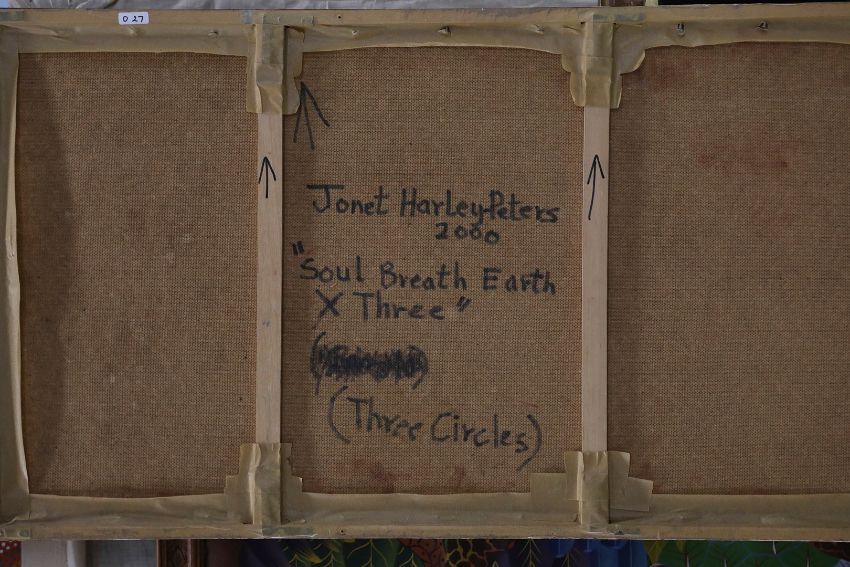 027
Jonet Harley-Peters
2000
"Soul Breath Earth
X Three"
(Three Circles)